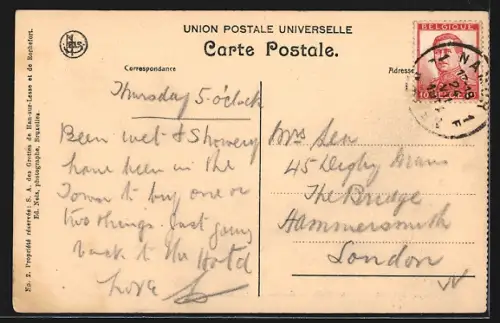 UNION POSTALE UNIVERSELLE
Carte Postale.
Correspondance
Adresse
BELGIQUE
Thursday 5 o'clock
Been wet & Showery
have been in the
Town to buy one or
two things. Just going
back to the Hotel
love
Mrs Lea
45 Digby Mans
The Bridge
Hammersmith
London
W
No. 2. Propriété réservée: S. A. des Grottes de Han-sur-Lesse et de Rochefort.
Ed. Nels, photographe, Bruxelles.